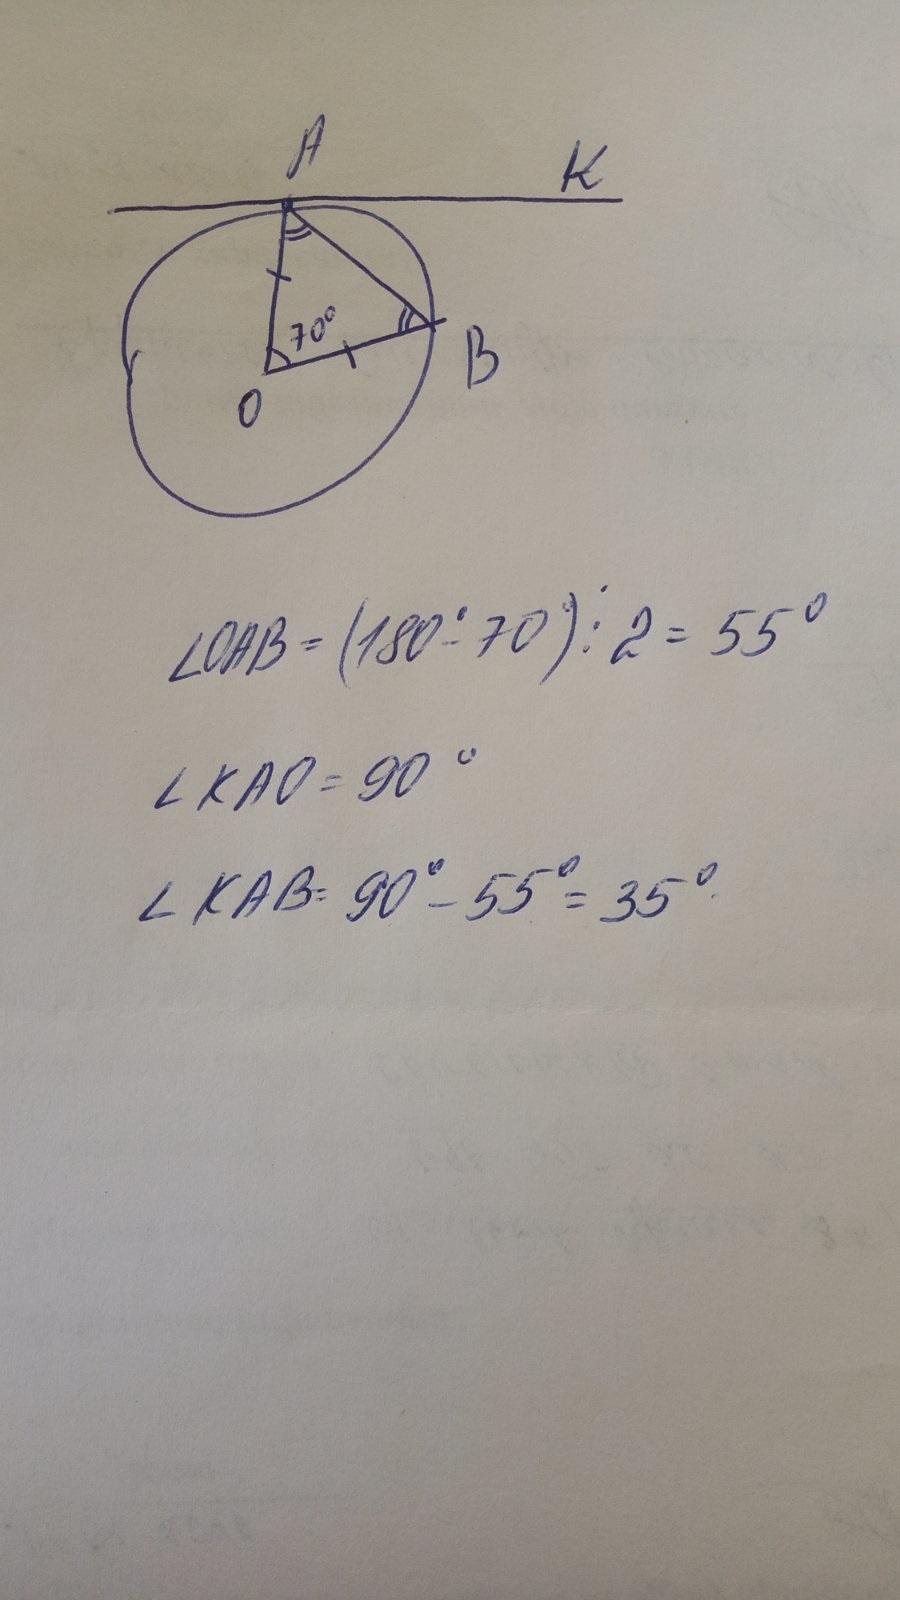 A
K
70°
B
O
∠OAB = (180° - 70°) : 2 = 55°
∠KAO = 90°
∠KAB = 90° - 55° = 35°.